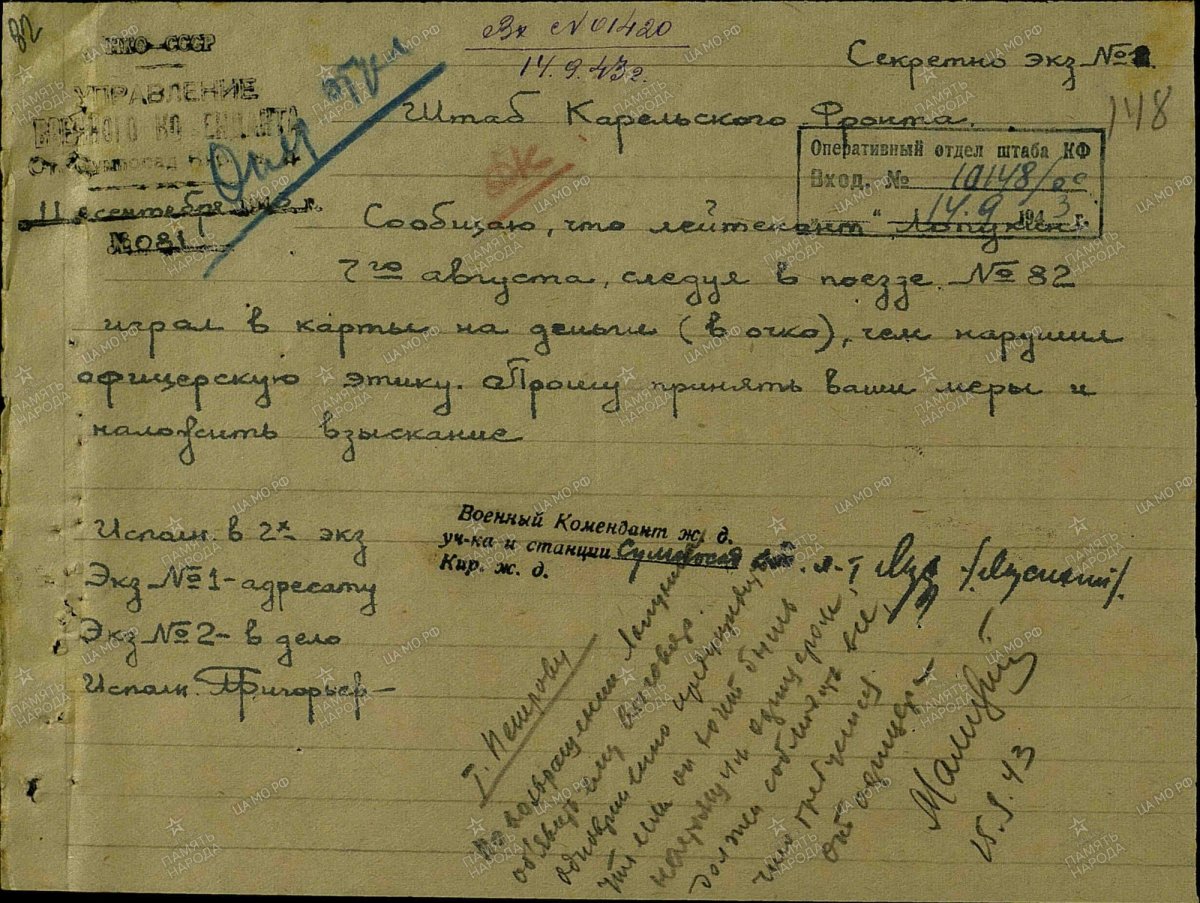 82
НКО СССР
УПРАВЛЕНИЕ
ВОЕННОГО КОМЕНДАНТА
11 сентября
№ 081
Вх №01420
14.9.43г.
Секретно экз №
148
Штаб Карельского Фронта.
Оперативный отдел штаба КФ
Вход. № 10148/
„ “ 14.9 1943 г.
Сообщаю, что лейтенант Лопухин
7го августа, следуя в поезде №82
играл в карты на деньги (в очко), чем нарушил
офицерскую этику. Прошу принять ваши меры и
наложить взыскание
Исполн. в 2х экз
Экз №1 - адресату
Экз №2 - в дело
Исполн. Григорьев -
Военный Комендант ж. д.
уч-ка и станции Сумпосад
Кир. ж. д.
Т. Петрову
По возвращении Лопухина
объявить ему выговор.
одновременно предупредить
что если он хочет быть
настоящим офицером,
должен соблюдать все,
что требуется
от офицера -
25.9.43
ПАМЯТЬ НАРОДА
ЦАМО.РФ